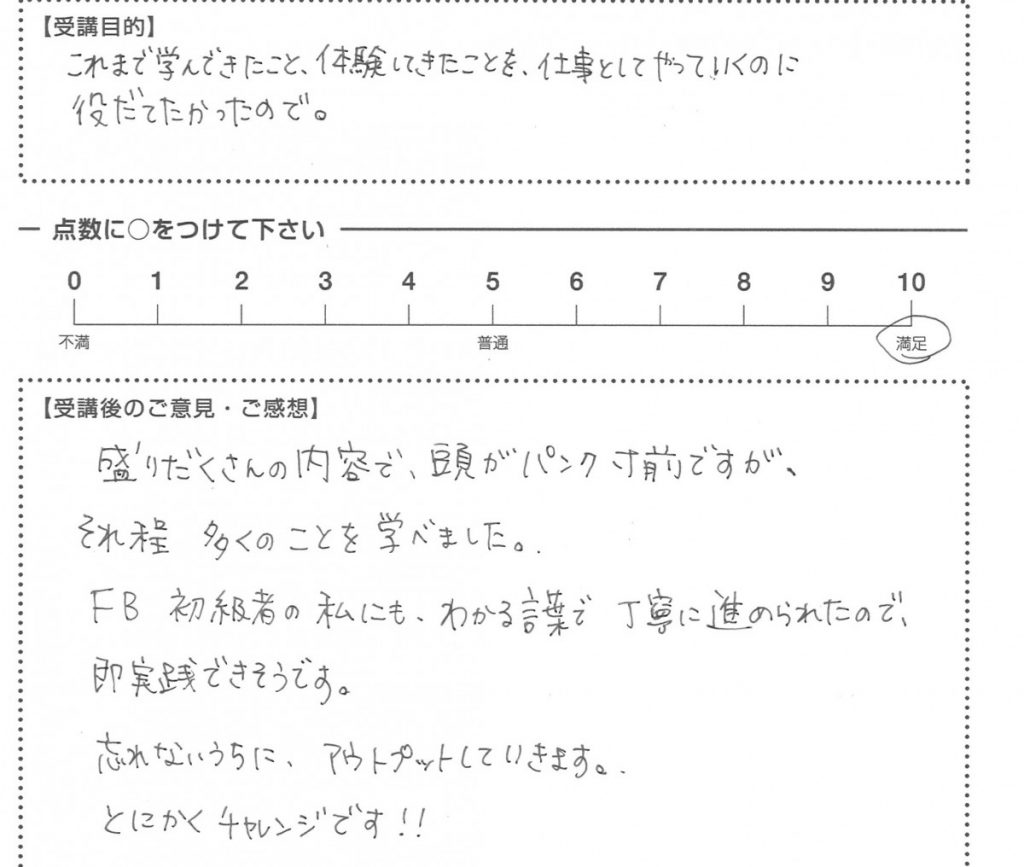 【受講目的】
これまで学んできたこと、体験してきたことを、仕事としてやっていくのに
役だてたかったので。
点数に○をつけて下さい
0 1 2 3 4 5 6 7 8 9 10
不満 普通 満足
【受講後のご意見・ご感想】
盛りだくさんの内容で、頭がパンク寸前ですが、
それ程 多くのことを学べました。
FB 初級者の私にも、わかる言葉で 丁寧に進められたので、
即実践できそうです。
忘れないうちに、アウトプットしていきます。
とにかくチャレンジです!!